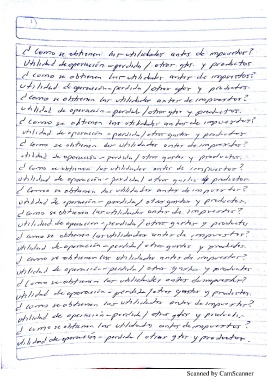 1)
¿Como se obtienen las utilidades antes de impuestos?
Utilidad de operación - perdida / otros gtos. y productos
¿Como se obtienen las utilidades antes de impuestos?
utilidad de operación - perdida / otros gtos y productos.
¿Como se obtienen las utilidades antes de impuestos?
utilidad de operación - perdida / otros gtos y productos.
¿Como se obtienen las utilidades antes de impuestos?
utilidad de operación - perdida / otros gastos y productos.
¿Como se obtienen las utilidades antes de impuestos?
utilidad de operación - perdida / otros gastos y productos.
¿Como se obtienen las utilidades antes de impuestos?
utilidad de operación - perdida / otros gastos y productos
¿Como se obtienen las utilidades antes de impuestos?
utilidad de operación - perdida / otros gastos y productos.
¿Como se obtienen las utilidades antes de impuestos?
utilidad de operación - perdida / otros gastos y productos
¿Como se obtienen las utilidades antes de impuestos?
utilidad de operación - perdida / otros gastos y productos.
¿Como se obtienen las utilidades antes de impuestos?
utilidad de operación - perdida / otros gastos y productos
¿Como se obtienen las utilidades antes de impuestos?
utilidad de operación - perdida / otros gastos y productos.
¿Como se obtienen las utilidades antes de impuestos?
utilidad de operación - perdida / otros gtos y productos.
¿Como se obtienen las utilidades antes de impuestos?
utilidad de operación - perdida / otros gtos y productos.
Scanned by CamScanner